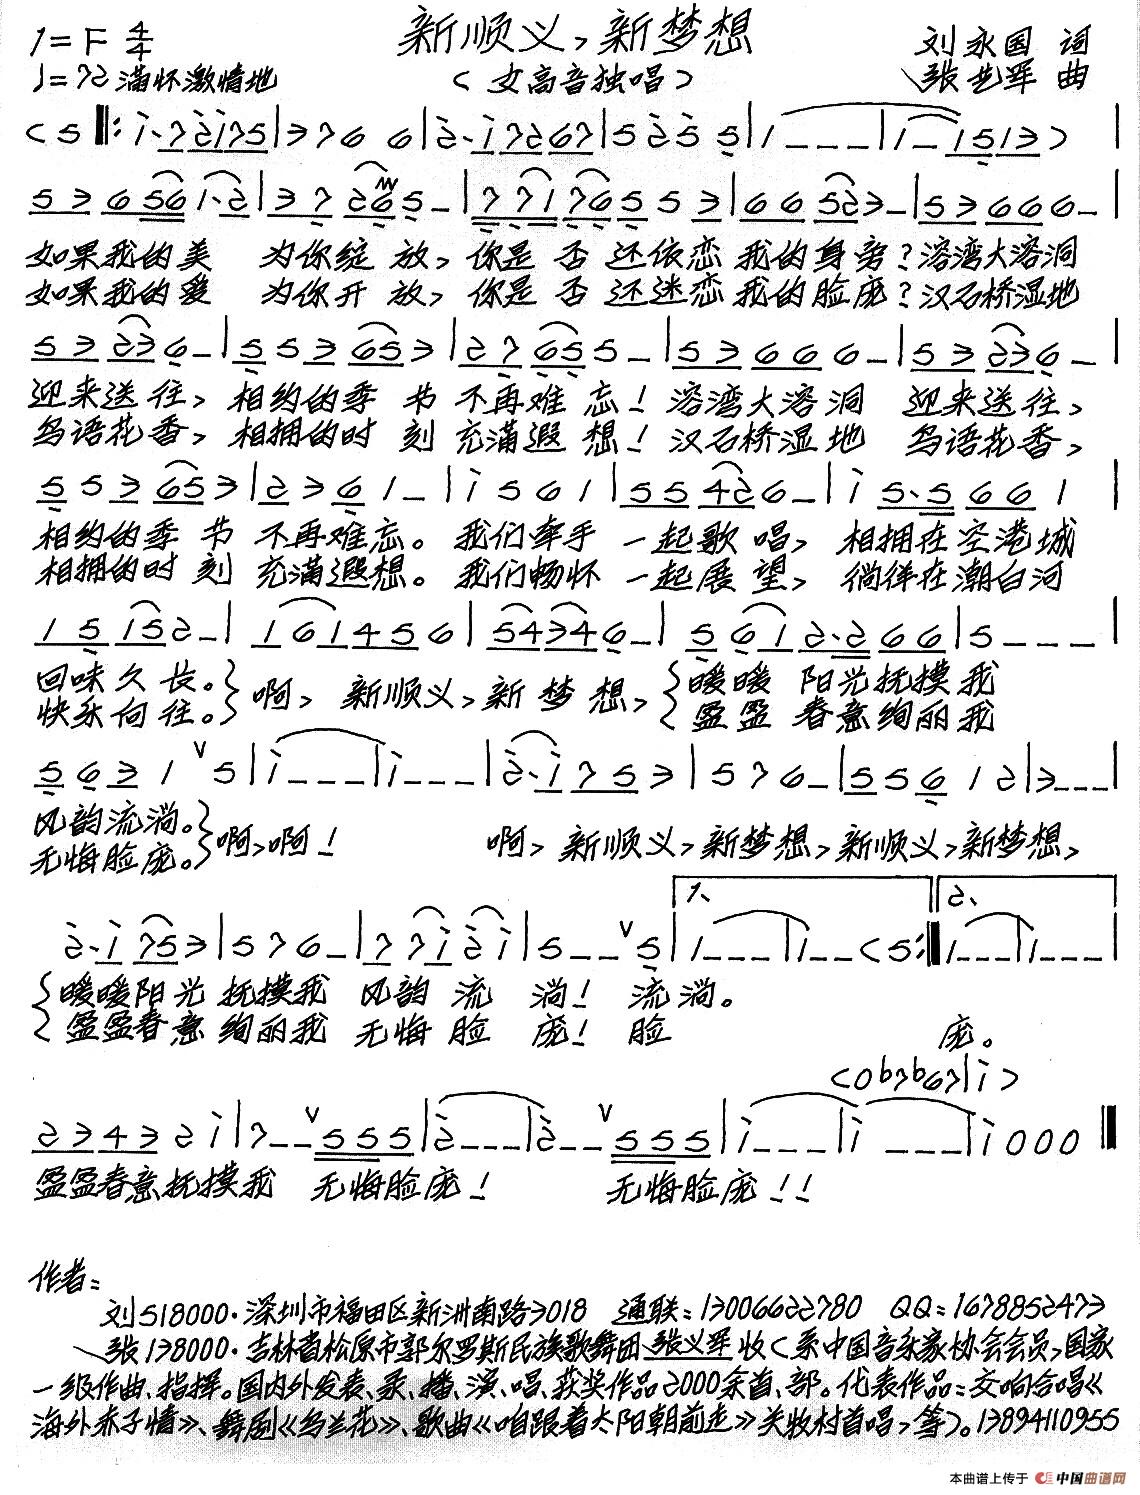 新顺义，新梦想
1=F 4/4
刘永国 词
♩=72 满怀激情地
（女高音独唱）
张艺军 曲
如果我的美 为你绽放，你是否还依恋我的身旁？溶湾大溶洞
如果我的爱 为你开放，你是否还迷恋我的脸庞？汉石桥湿地
迎来送往，相约的季节不再难忘！溶湾大溶洞 迎来送往，
鸟语花香，相拥的时刻充满遐想！汉石桥湿地 鸟语花香，
相约的季节 不再难忘。我们牵手 一起歌唱，相拥在空港城
相拥的时刻 充满遐想。我们畅怀 一起展望，徜徉在潮白河
回味久长。
快乐向往。
啊，新顺义，新梦想，
暖暖阳光抚摸我
盈盈春意绚丽我
风韵流淌。
无悔脸庞。
啊，啊！ 啊，新顺义，新梦想，新顺义，新梦想，
1、 2、
暖暖阳光抚摸我 风韵流淌！流淌。
盈盈春意绚丽我 无悔脸庞！脸 庞。
盈盈春意抚摸我 无悔脸庞！ 无悔脸庞！！
作者：
刘518000·深圳市福田区新洲南路3018 通联：13006622780 QQ：1678852473
张138000·吉林省松原市郭尔罗斯民族歌舞团 张义军收（系中国音乐家协会会员，国家
一级作曲、指挥。国内外发表、录、播、演、唱、获奖作品2000余首、部。代表作品：交响合唱《
海外赤子情》、舞剧《乌兰花》、歌曲《咱跟着太阳朝前走》关牧村首唱，等）。13894110955
本曲谱上传于 中国曲谱网